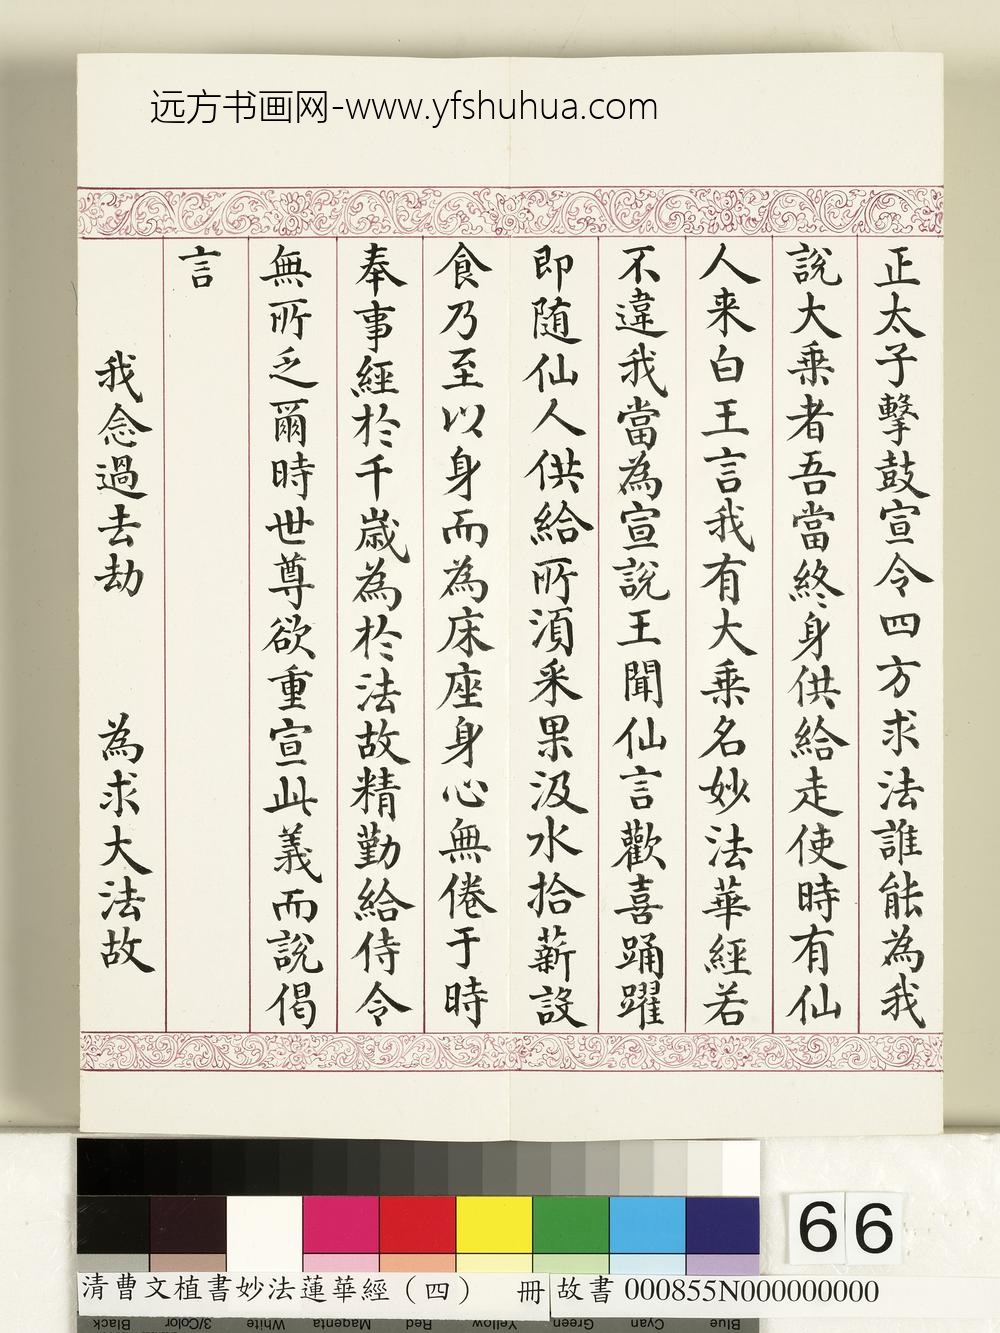 远方书画网-www.yfshuhua.com
正太子擊鼓宣令四方求法誰能為我
說大乗者吾當終身供給走使時有仙
人来白王言我有大乗名妙法華經若
不違我當為宣說王聞仙言歡喜踊躍
即随仙人供給所須采果汲水拾薪設
食乃至以身而為床座身心無倦于時
奉事經於千歲為於法故精勤給侍令
無所乏爾時世尊欲重宣此義而說偈
言
我念過去劫 為求大法故
66
清曹文植書妙法蓮華經（四） 冊 故書 000855N000000000
Black 3/Color White Magenta Red Yellow Green Cyan Blue